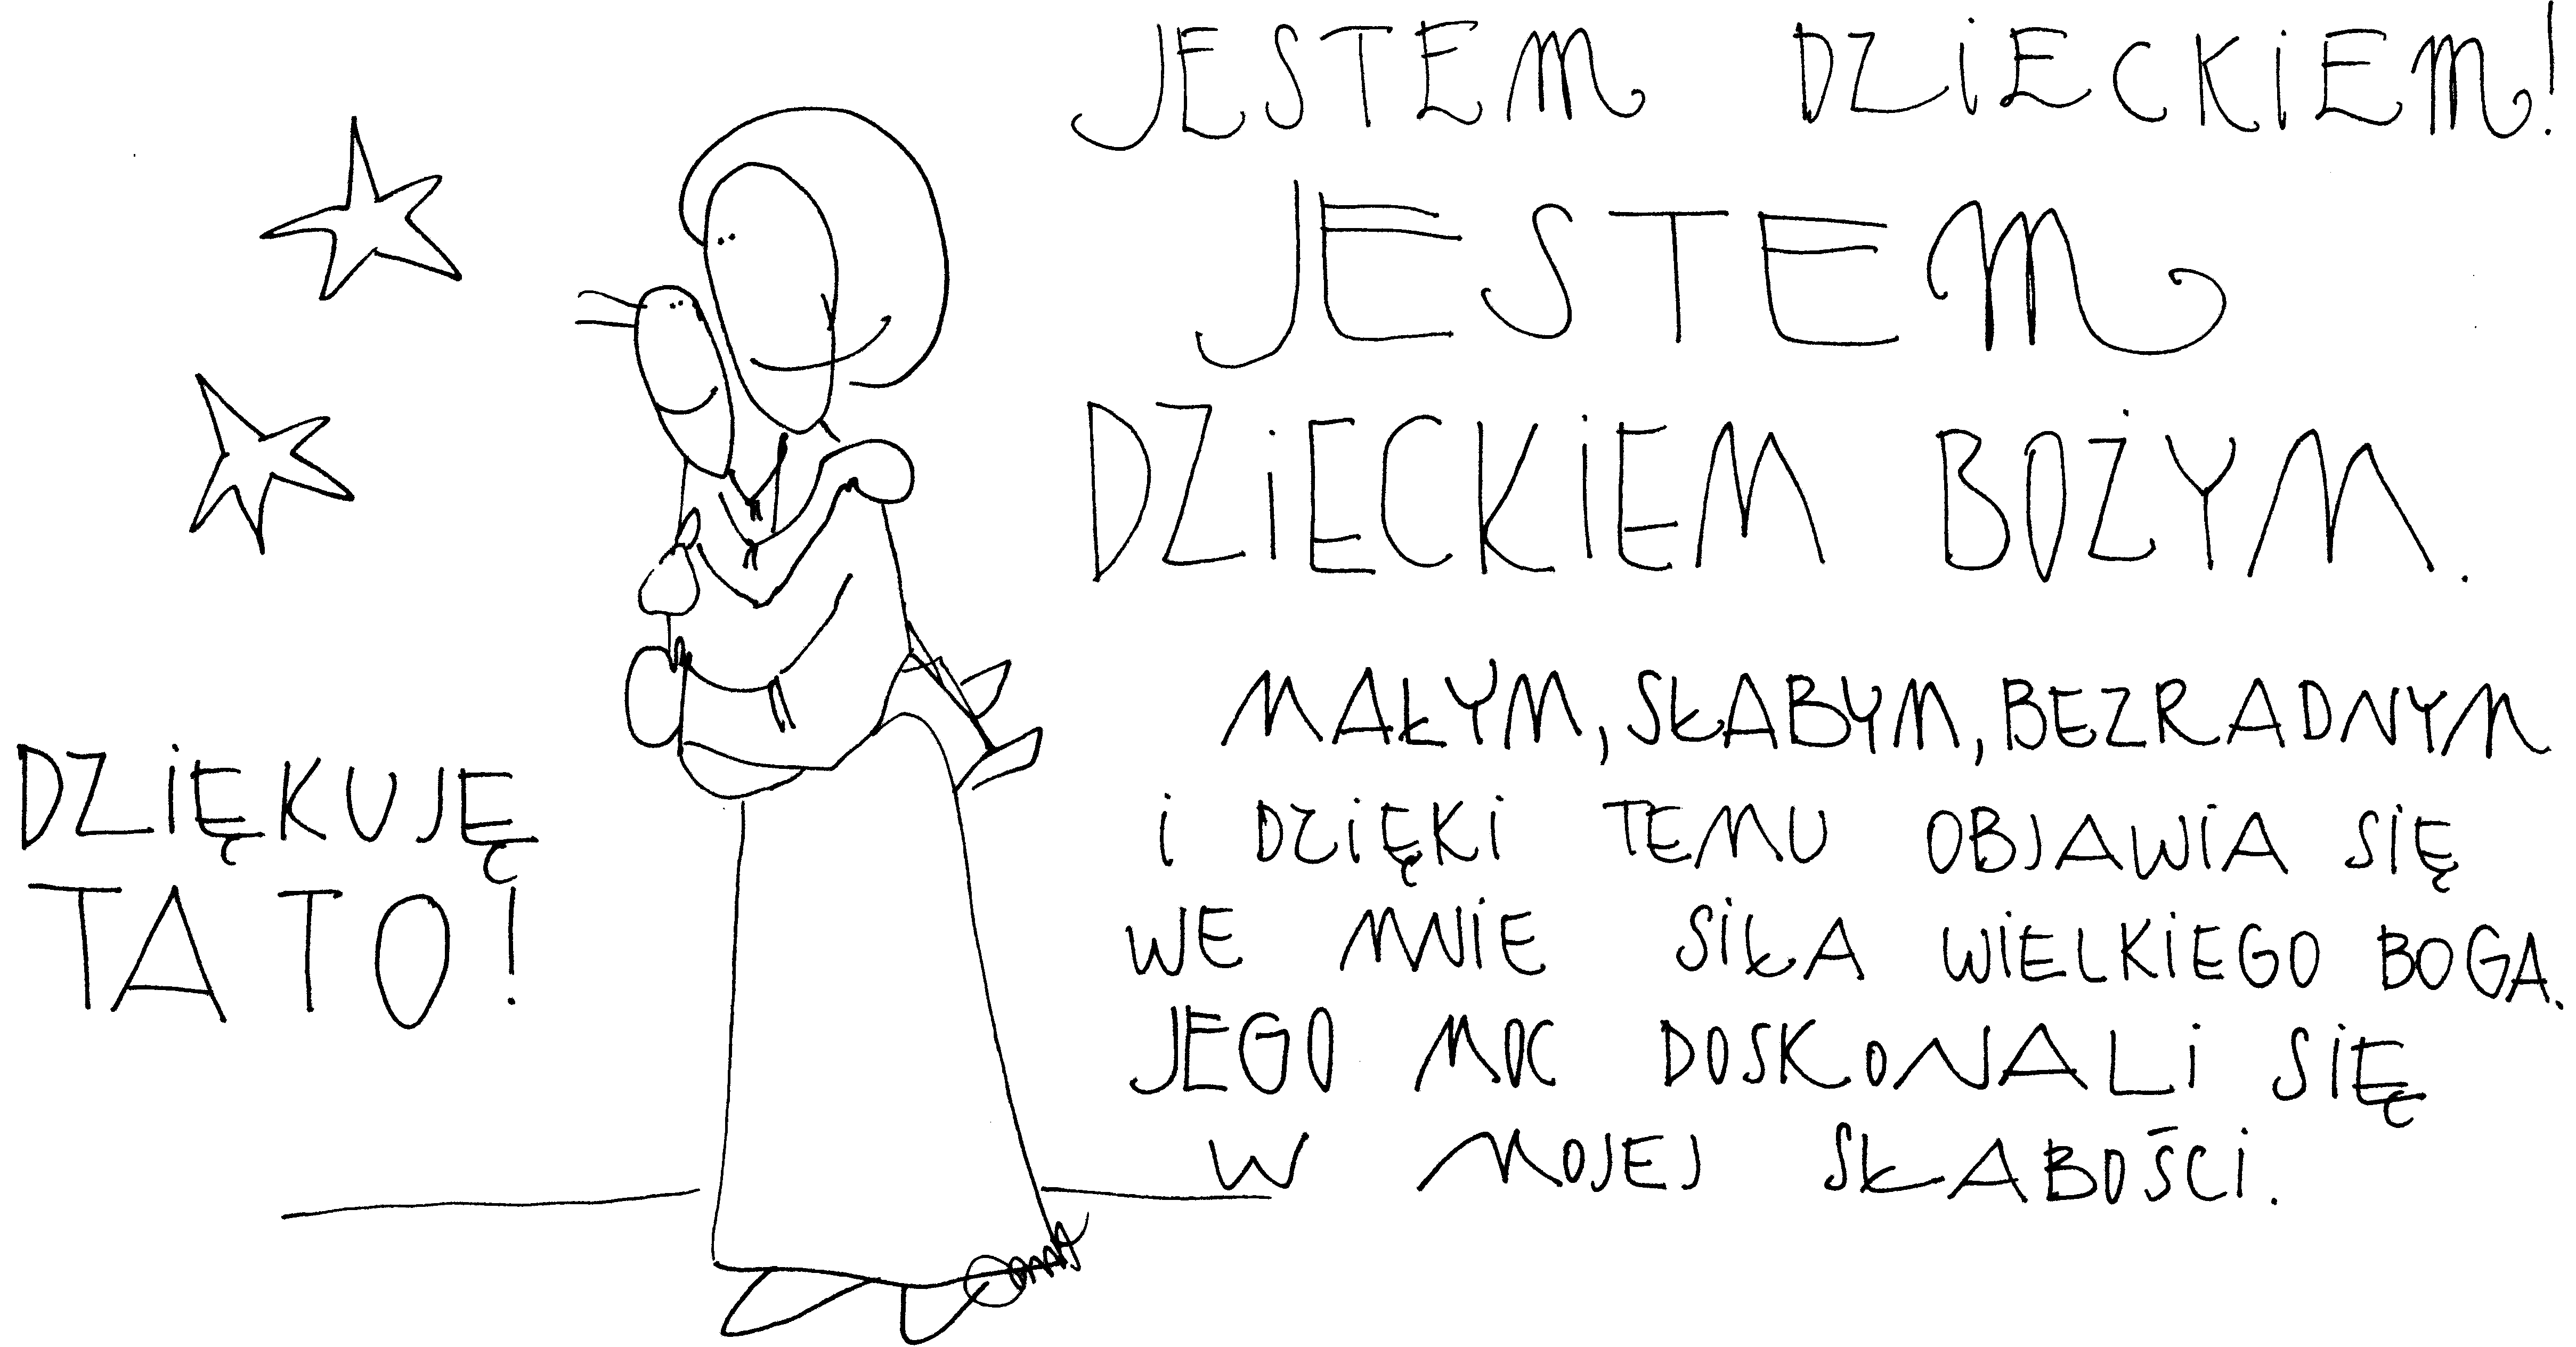 JESTEM DZIECKIEM!
JESTEM
DZIECKIEM BOŻYM.
MAŁYM, SŁABYM, BEZRADNYM
I DZIĘKI TEMU OBJAWIA SIĘ
WE MNIE SIŁA WIELKIEGO BOGA.
JEGO MOC DOSKONALI SIĘ
W MOJEJ SŁABOŚCI.
DZIĘKUJĘ
TATO!